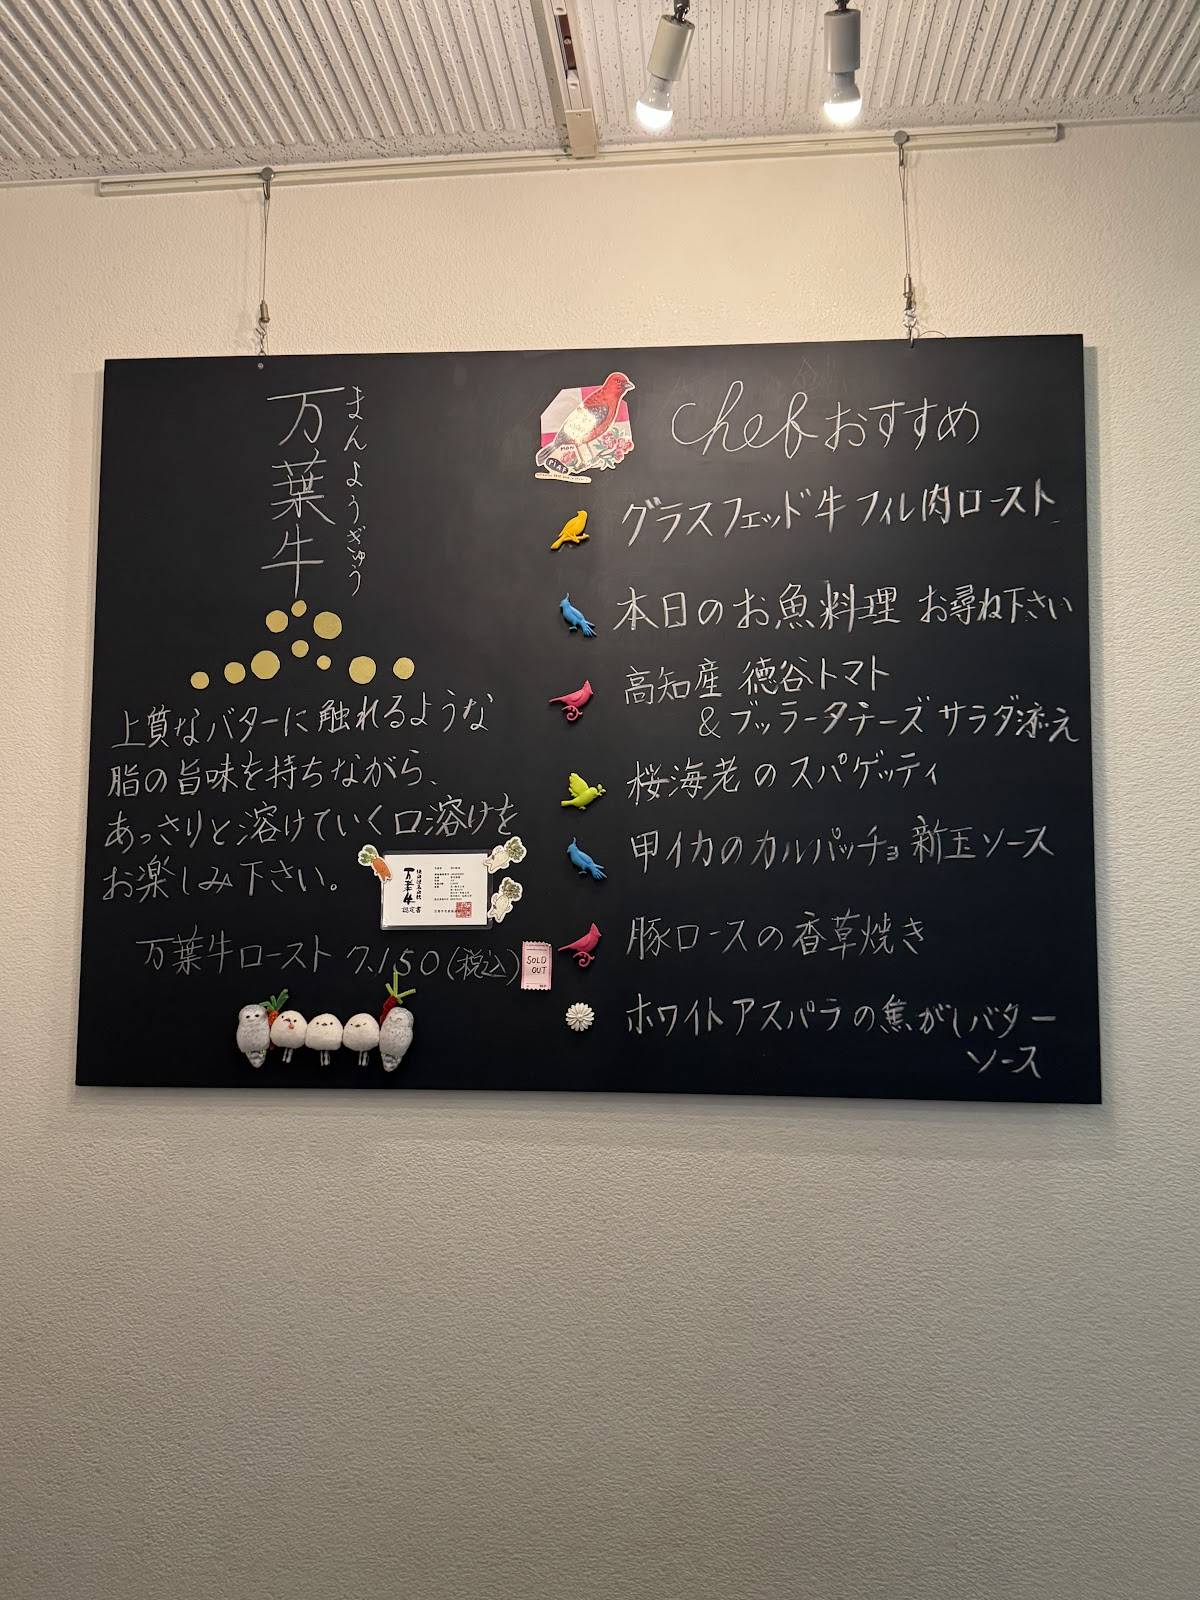 万葉牛
まんようぎゅう
上質なバターに触れるような
脂の旨味を持ちながら、
あっさりと溶けていく口溶けを
お楽しみ下さい。
万葉牛
認定書
万葉牛ロースト 7,150(税込)
SOLD
OUT
MON
PIAF
Chefおすすめ
グラスフェッド牛フィレ肉ロースト
本日のお魚料理 お尋ね下さい
高知産 徳谷トマト
&ブッラータチーズ サラダ添え
桜海老のスパゲッティ
甲イカのカルパッチョ新玉ソース
豚ロースの香草焼き
ホワイトアスパラの焦がしバター
ソース